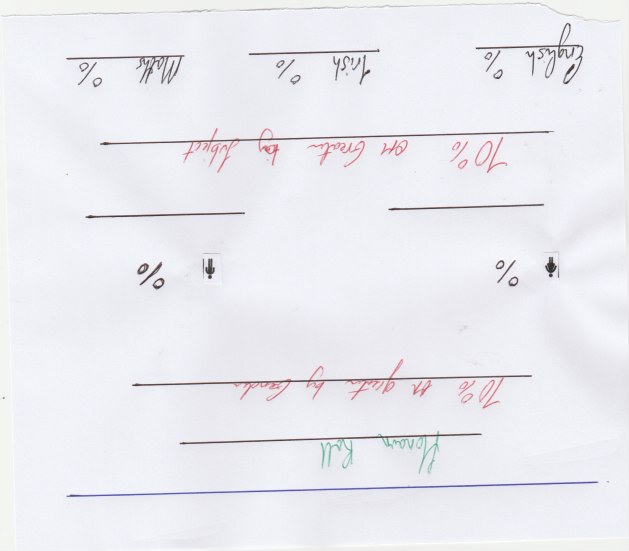 Honour Roll
70% or greater by Gender
% %
70% or Greater by Subject
English % Irish % Maths %